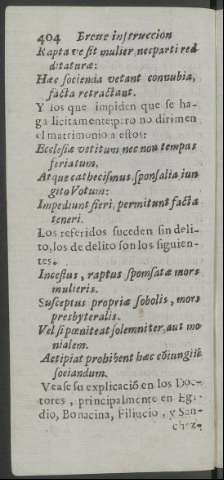 404 Breve instruccion
Rapta ve sit mulier, nec parti red
ditaturæ:
Hæc socienda vetant connubia,
facta retractant.
Y los que impiden que se ha-
ga licitamente pero no dirimen
el matrimonio a estos:
Ecclesiæ vetitum nec non tempus
feriatum.
Atque cathecismus sponsalia iun
gito Votum:
Impediunt fieri, permitunt facta
teneri.
Los referidos suceden sin deli-
to, los de delito son los siguien-
tes.
Incestus, raptus sponsatæ mors
mulieris.
Susceptus propriæ sobolis, mors
presbyteralis.
Vel si pœniteat solemniter, aut mo
nialem.
Aetipiat prohibent hæc cōiungiis
sociandum.
Vease su explicació en los Doc-
tores, principalmente en Egi-
dio, Bonacina, Filiucio, y San-
chez